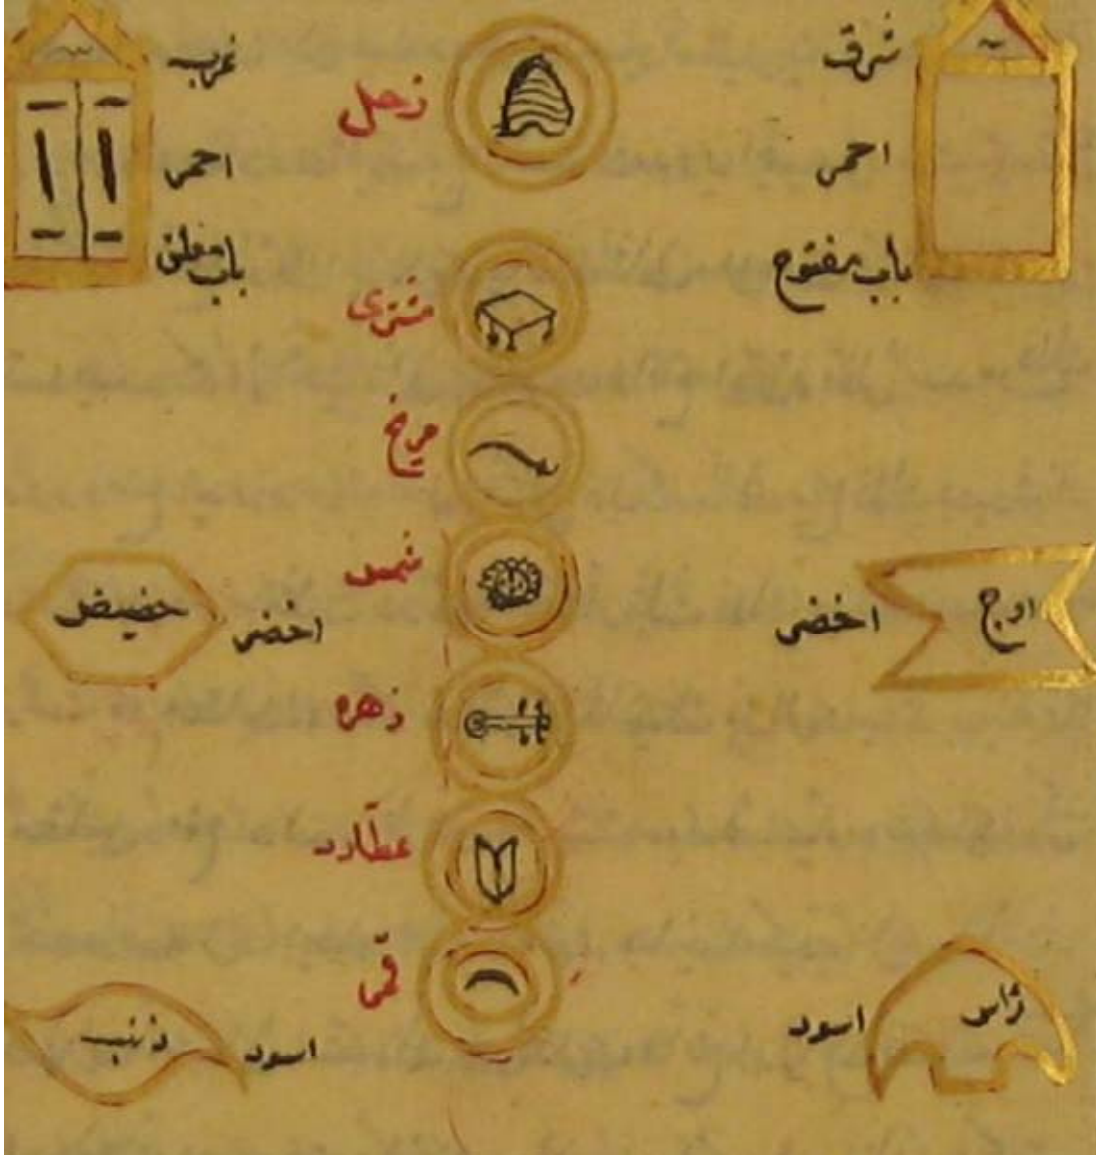 شرق
احمر
باب مفتوح
زحل
غرب
احمر
باب مغلق
مشتری
مریخ
شمس
اوج
اخضر
اخضر
حضیض
زهره
عطارد
قمر
رأس
اسود
اسود
ذنب